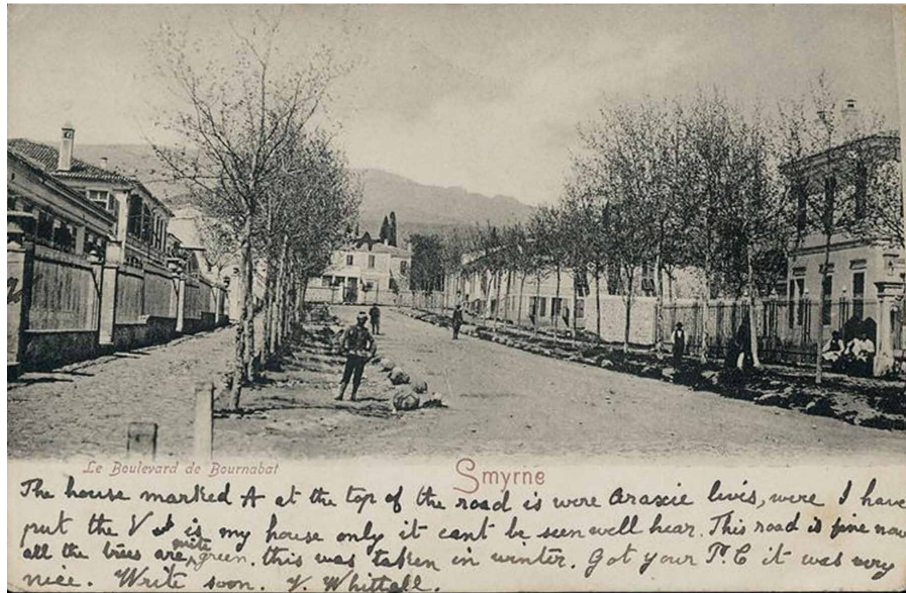 Le Boulevard de Bournabat
Smyrne
The house marked A at the top of the road is were Araxie lives, were I have
put the V it is my house only it cant be seen well hear. This road is fine now
all the trees are quite green. this was taken in winter. Got your P.C it was very
nice. Write soon. V. Whittall.